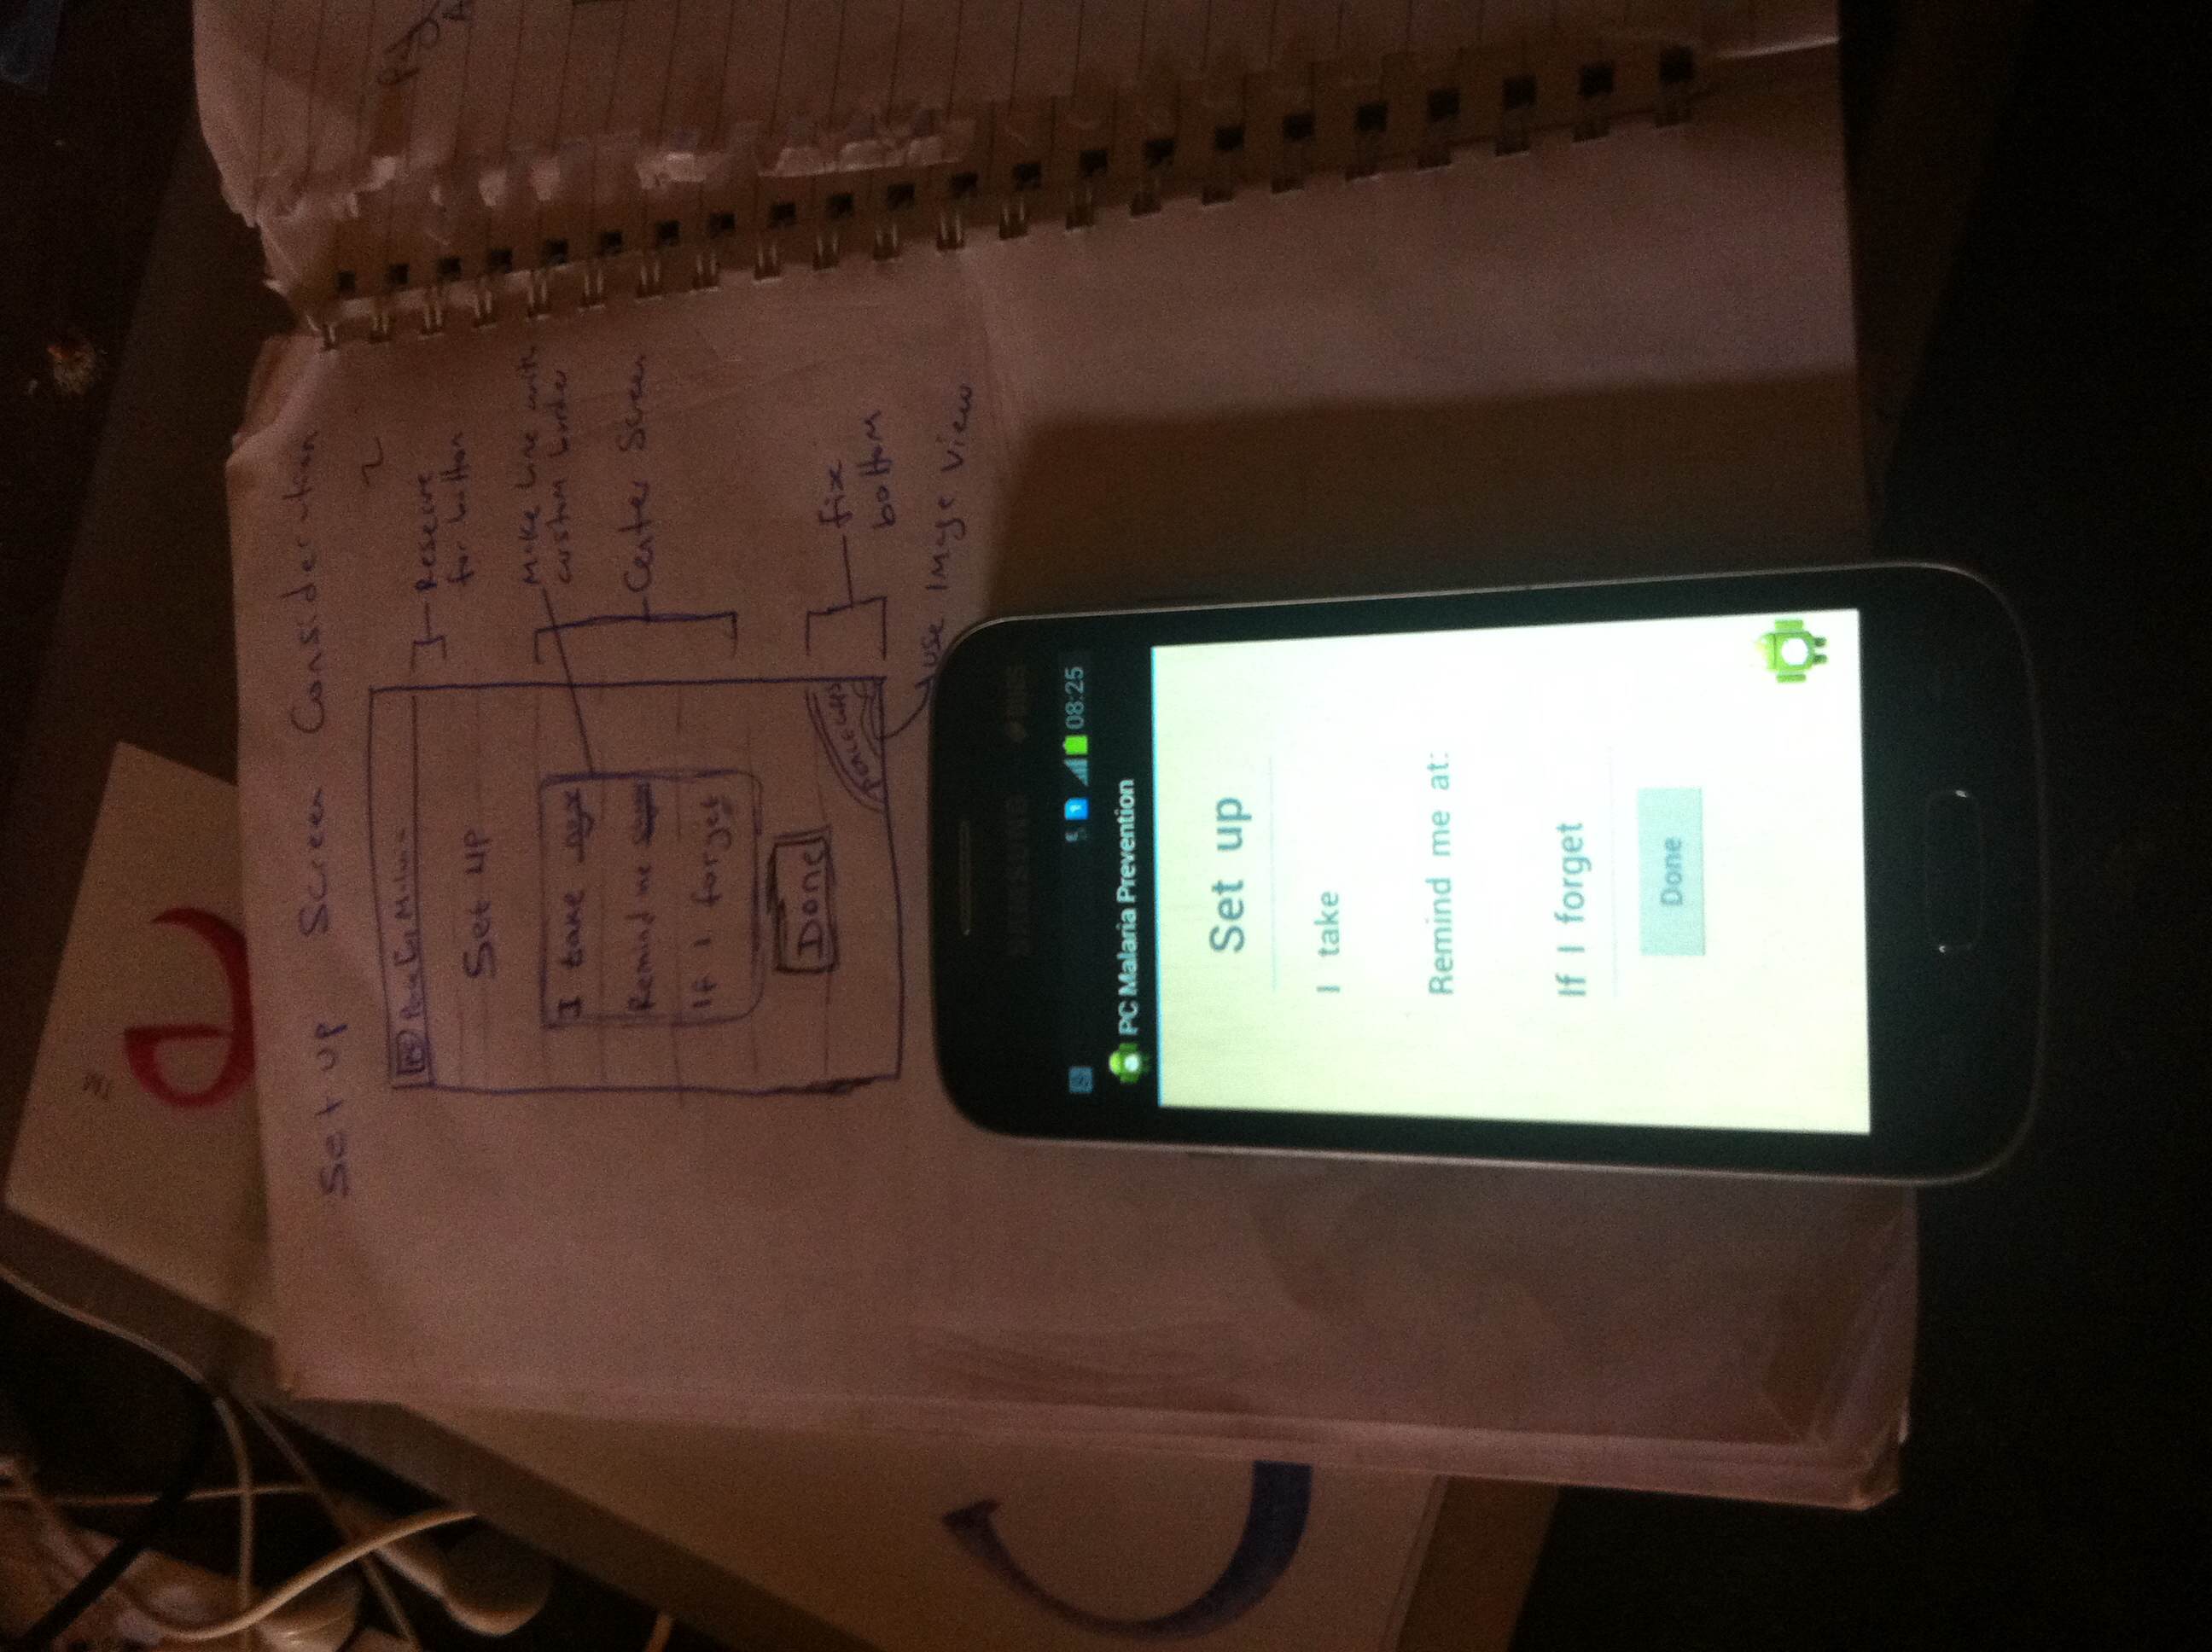 TM
e
Set up Screen Consideration
PC
Set up
I take
Remind me
If I forget
Done
Reserve
for button
Make Line with
custom border
Center Screen
fix
bottom
use Image View
SAMSUNG DUOS
08:25
PC Malaria Prevention
Set up
I take
Remind me at:
If I forget
Done